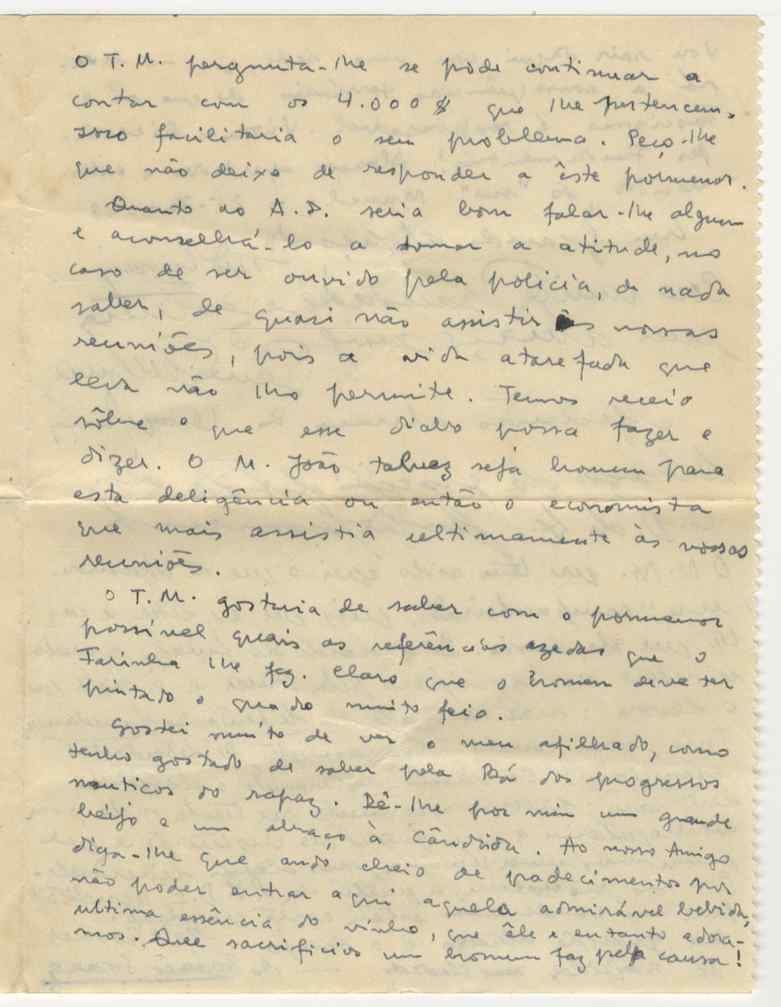 O T.M. pergunta-lhe se pode continuar a
contar com os 4.000$ que lhe pertencem,
isso facilitaria o seu problema. Peço-lhe
que não deixe de responder a êste pormenor.
Quanto ao A.D. seria bom falar-lhe alguem
e aconselhá-lo a tomar a atitude, no
caso de ser ouvido pela policia, de nada
saber, de quasi não assistir às nossas
reuniões, pois a vida atarefada que
leva não lho permite. Temos receio
sôbre o que esse diabo possa fazer e
dizer. O M. João talvez seja homem para
esta deligência ou então o economista
que mais assistia ultimamente às vossas
reuniões.
O T.M. gostaria de saber com o pormenor
possível quais as referências azedas que o
Farinha lhe fez. Claro que o homem deve ter
pintado o quadro muito feio.
Gostei muito de ver o meu afilhado, como
tenho gostado de saber pela Bá dos progressos
nauticos do rapaz. Dê-lhe por mim um grande
beijo e um abraço à Cândida. Ao nosso Amigo
diga-lhe que ando cheio de padecimentos por
não poder entrar aqui aquela admirável bebida,
ultima essência do vinho, que êle e eu tanto adora-
mos. Que sacrificios um homem faz pela causa!